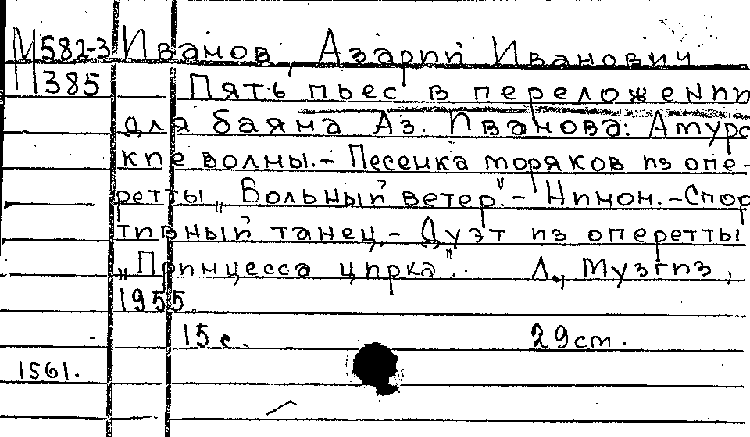 М582-3 Иванов, Азарий Иванович
П385 Пять пьес в переложении
для баяна Аз. Иванова: Амурс
кие волны.- Песенка моряков из опе-
ретты „Вольный ветер"- Нинон.-Спор
тивный танец.- Дуэт из оперетты
„Принцесса цирка". Л., Музгиз,
1955.
15 с. 29 cm.
1561.